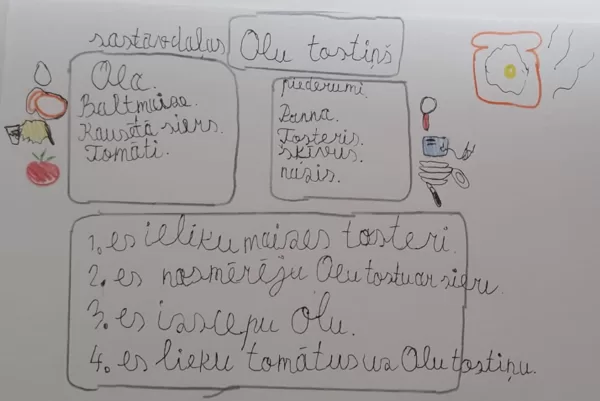 sastāvdaļas
Olu tostiņš
Ola.
Baltmaize.
Kausētā siers.
Tomāti.
piederumi.
Panna.
Tosteris.
šķīvus.
nazis.
1. es ieliku maizes tosterī.
2. es nosmērēju Olu tostu ar sieru.
3. es izscepu Olu.
4. es lieku tomātus uz Olu tostiņu.